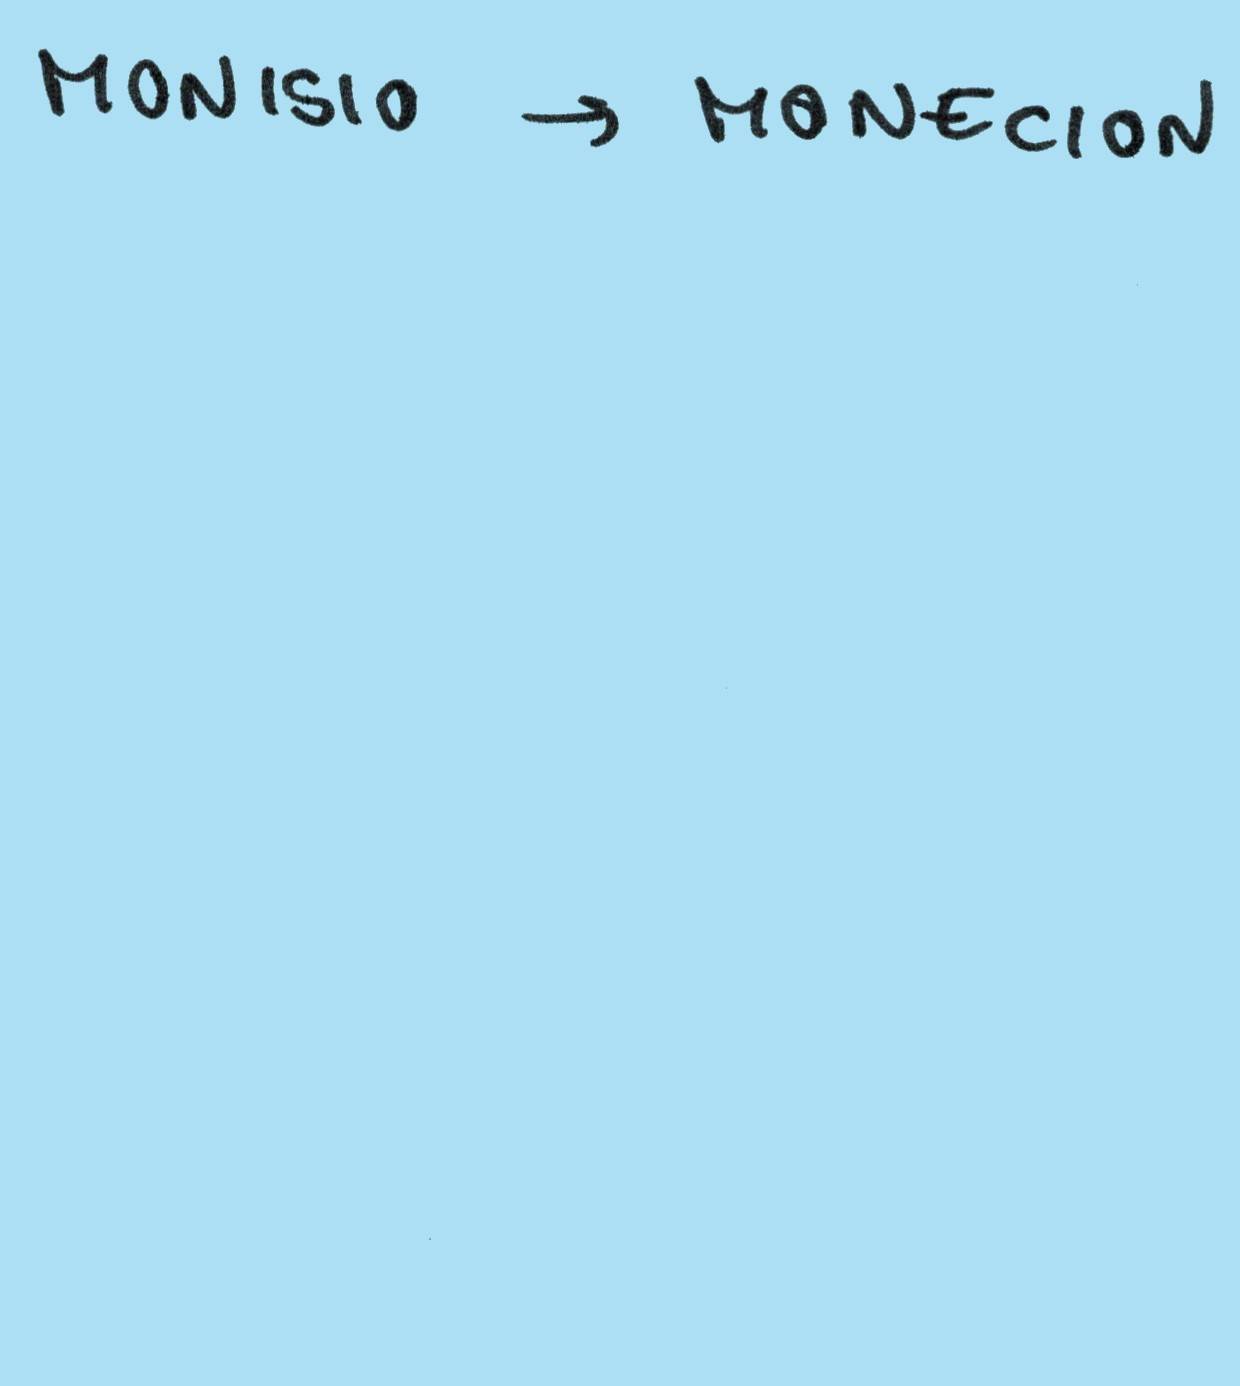 MONISIO → MONECION